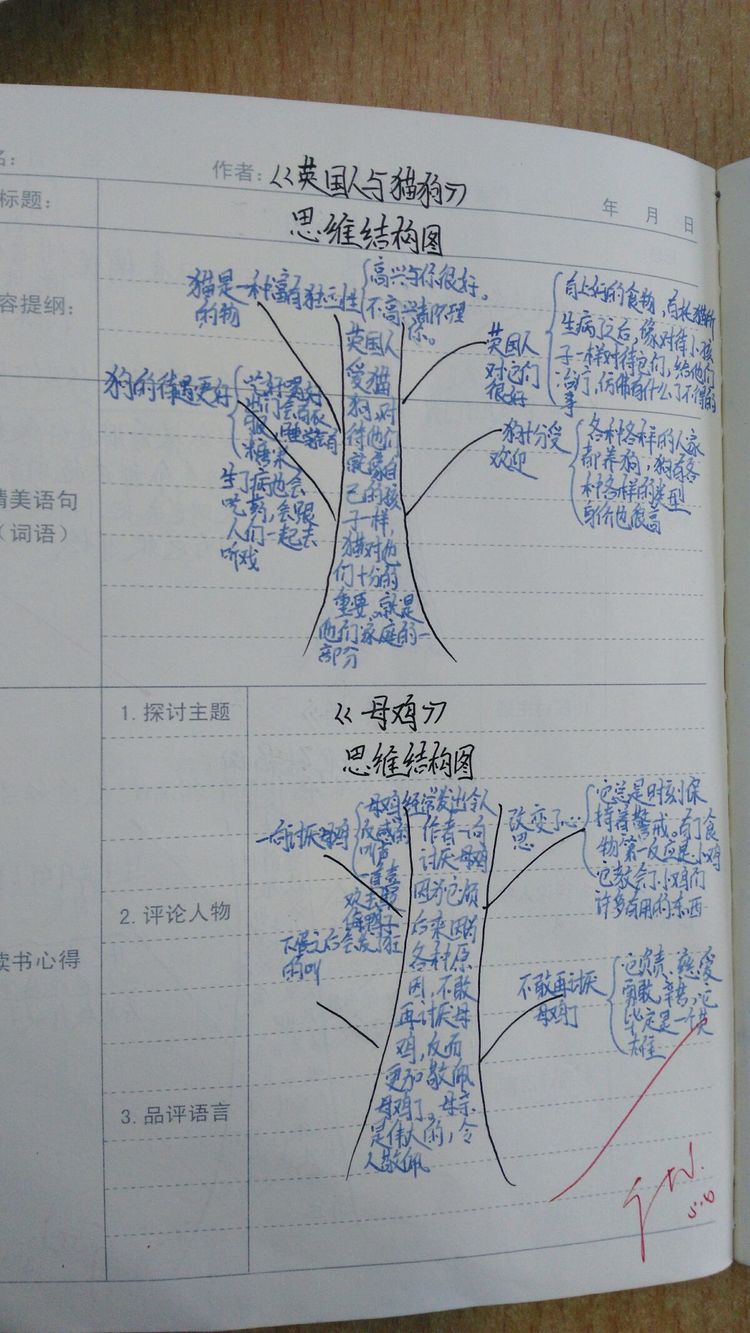 名:
作者:
年 月 日
标题:
容提纲:
精美语句
(词语)
读书心得
《英国人与猫狗》
思维结构图
猫是一种富有独立性
的物
高兴与你很好。
不高兴都不理
你。
英国人
受猫
狗,对
待他们
就像自
己的孩
子一样,
猫对他
们十分的
重要,就是
他们家庭的一
部分
狗的待遇更好
糖果
生了病也会
吃药,会跟
人们一起去
听戏
英国人
对它们
很好
有上好的食物,
生病之后,像对待小孩
子一样对待它们,给他们
治疗,仿佛有什么了不得的
事
狗十分受
欢迎
各种各样的人家
都养狗,狗有各
种各样的类型
身价也很高
1. 探讨主题
2. 评论人物
3. 品评语言
《母鸡》
思维结构图
一向讨厌母鸡
母鸡经常发出令人
反感的
叫声
一直喜
欢去欺
侮鸭子
下蛋之后会发了狂
的叫
作者一向
讨厌母鸡
因为它烦
后来因为
各种原
因,不敢
再讨厌母
鸡,反而
更加敬佩
母鸡了。母亲
是伟大的,令
人敬佩
改变了心
思
它总是时刻保
持着警戒。有了食
物第一反应是小鸡
它教会了小鸡们
许多有用的东西
不敢再讨厌
母鸡了
它负责、慈爱
勇敢,辛苦,它
一个英
雄